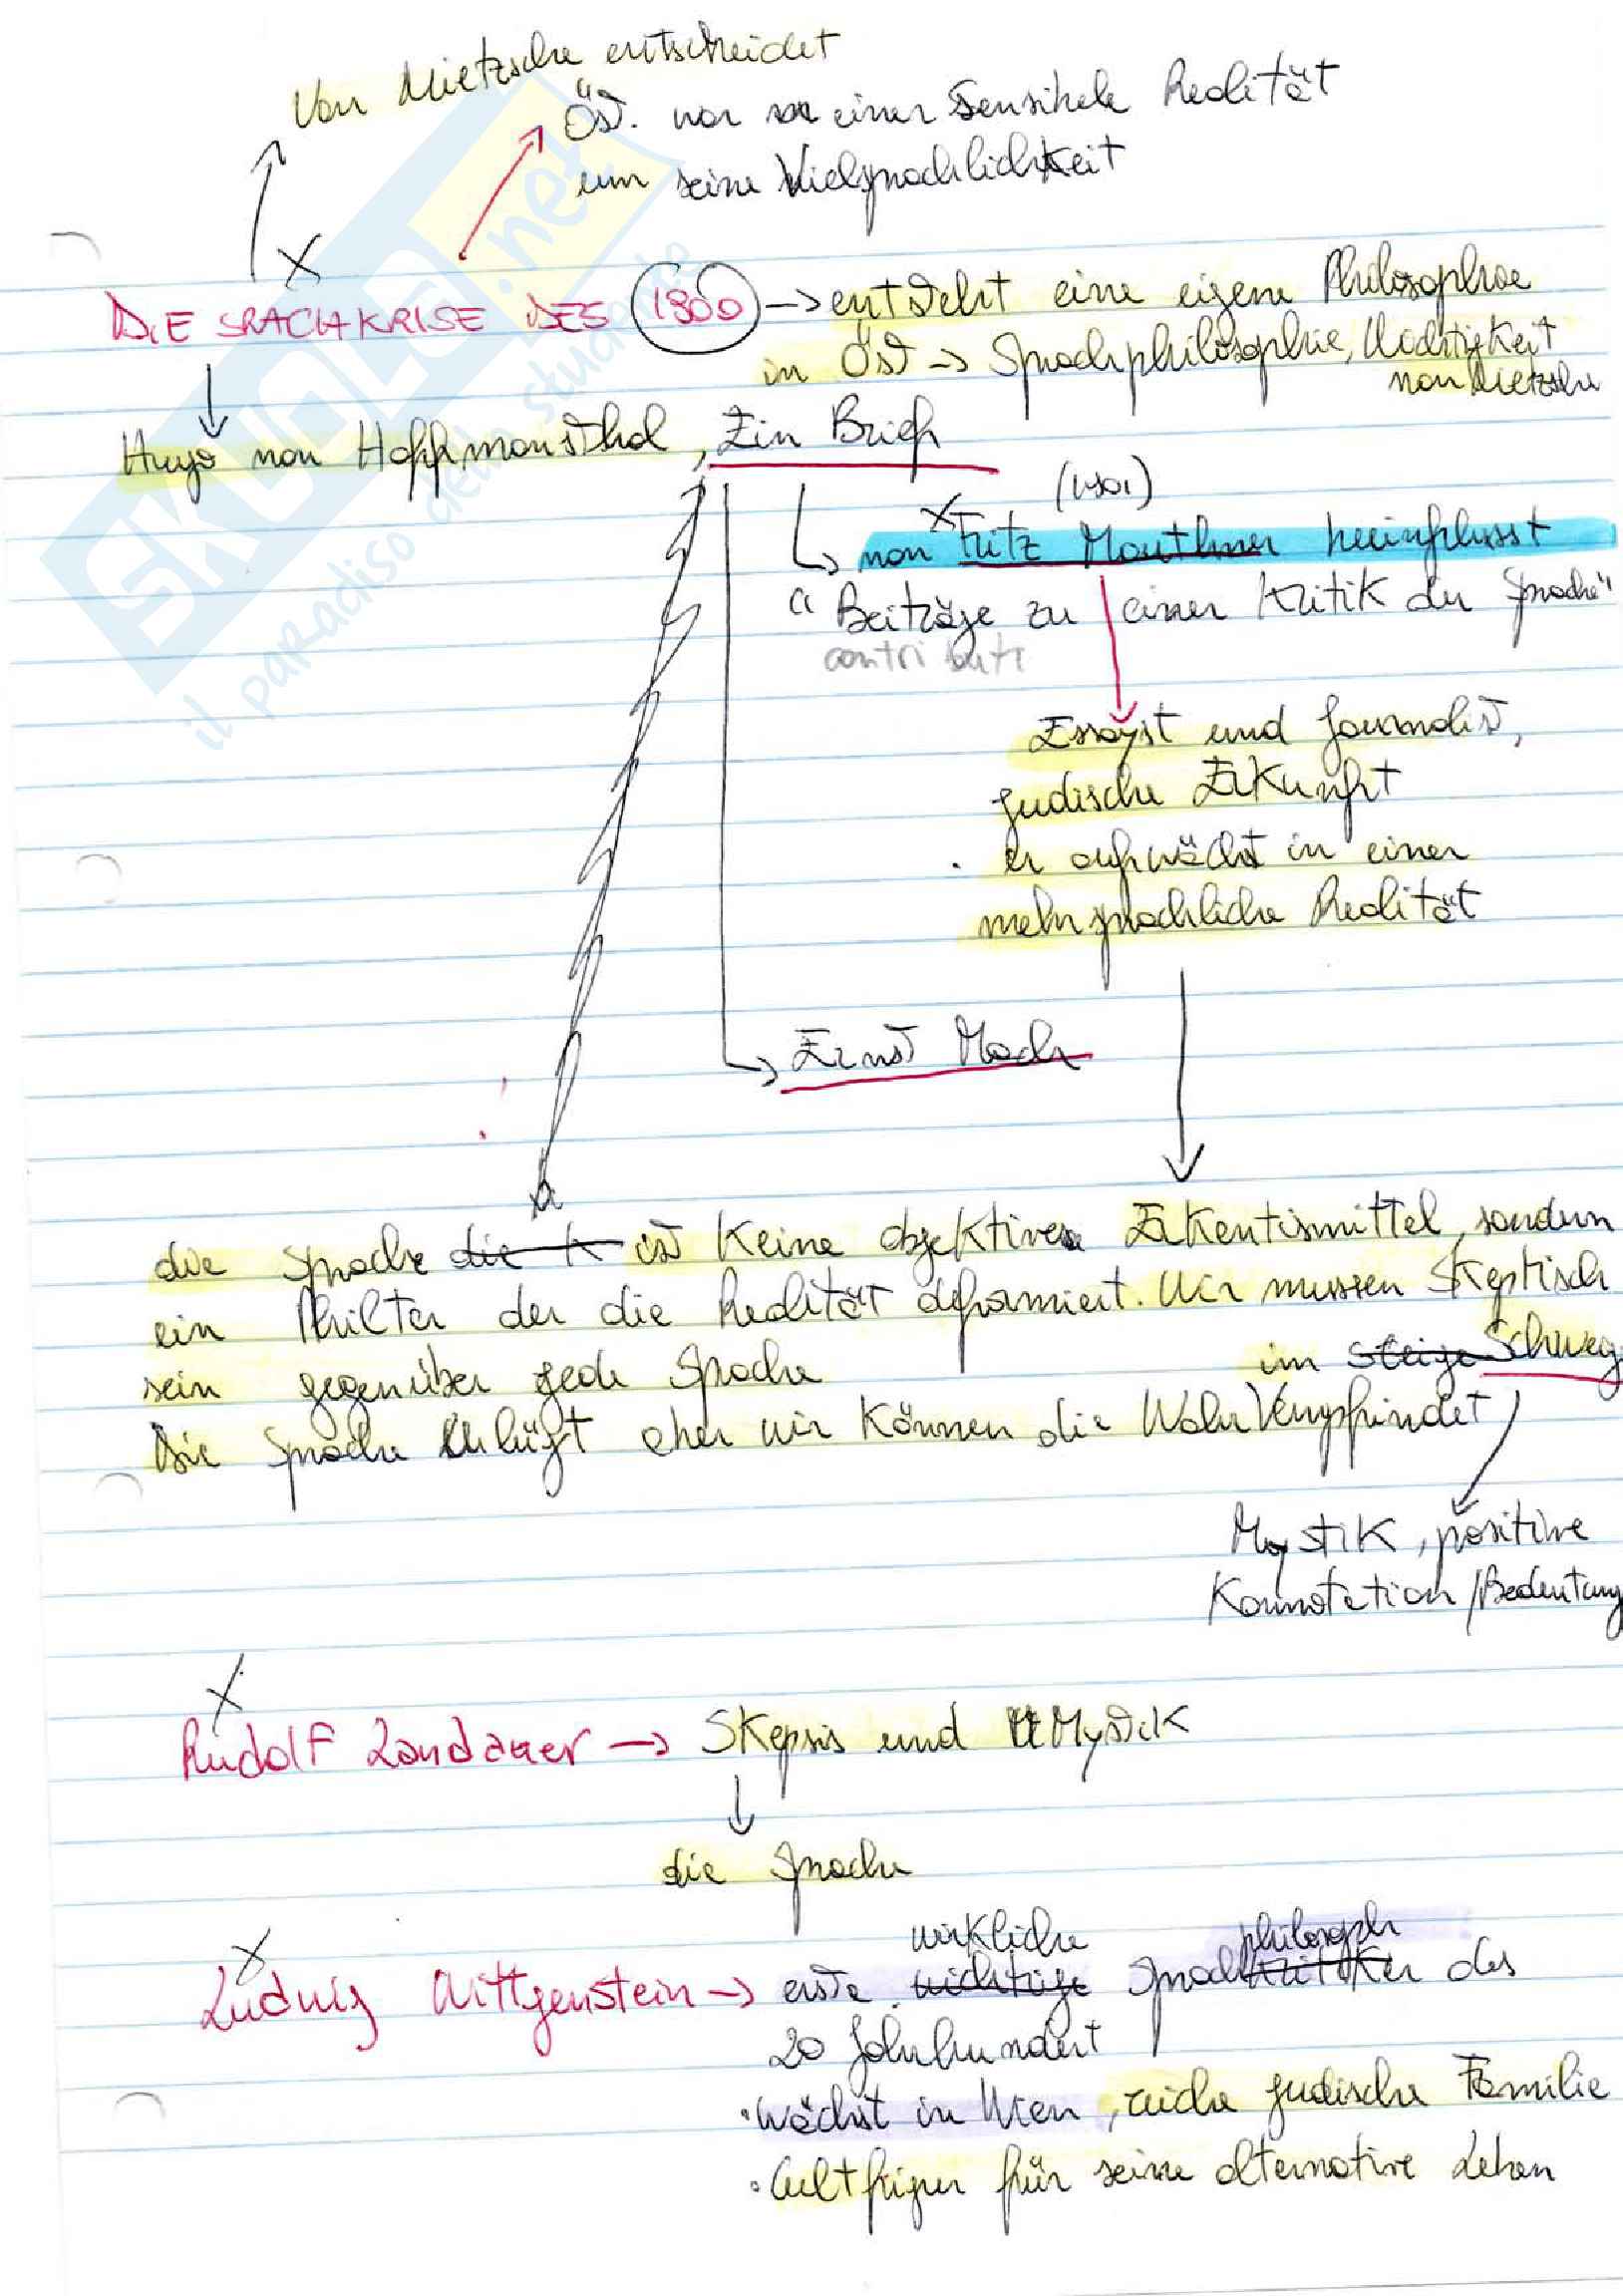 Von Nietzsche entscheidet
Öst. war einer sensibele Realität
um seine Vielsprachlichkeit
DIE SPACHKRISE DES 1900 → entsteht eine eigene Philosophie
in Öst → Sprachphilosophie, Wichtigkeit
von Nietzsche
Hugo von Hoffmansthal, Ein Brief
(1901)
von Fritz Mauthner beeinflusst
"Beiträge zu einer Kritik der Sprache"
contributi
Essayst und Journalist,
judische Erkunft
er aufwächst in einer
mehrsprachliche Realität
Ernst Mach
die Sprache die K ist keine objektive Erkentismittel, sondern
ein Philter der die Realität deformiert. Wir mussen skeptisch
sein gegenüber jede Sprache
im Steige Schweig
Die Sprache lügt aber wir können die Wahr empfindet
Mystik, positive
Konnotation/Bedeutung
Rudolf Landauer → Skepsis und Mystik
die Sprache
wirkliche philosoph
Ludwig Wittgenstein → erste wichtige Sprachkritiker des
20 Jahrhundert
• wächst in Wien, reiche judische Familie
• Cultfigur für seine alternative Leben
SKUOLA.net
il paradiso dello studente